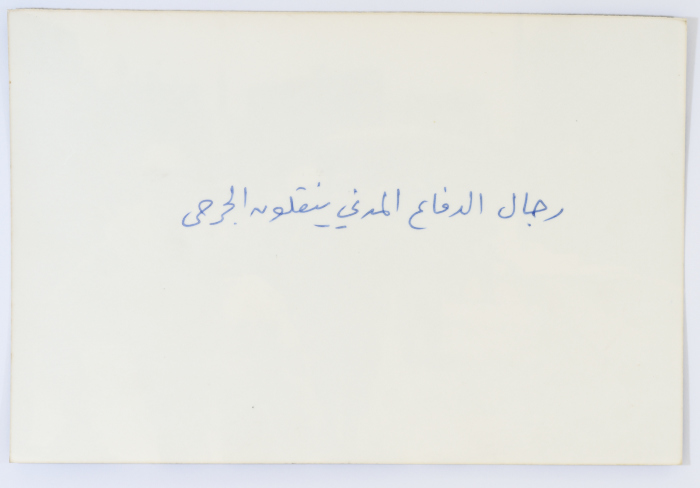 رجال الدفاع المدني ينقلون الجرحى